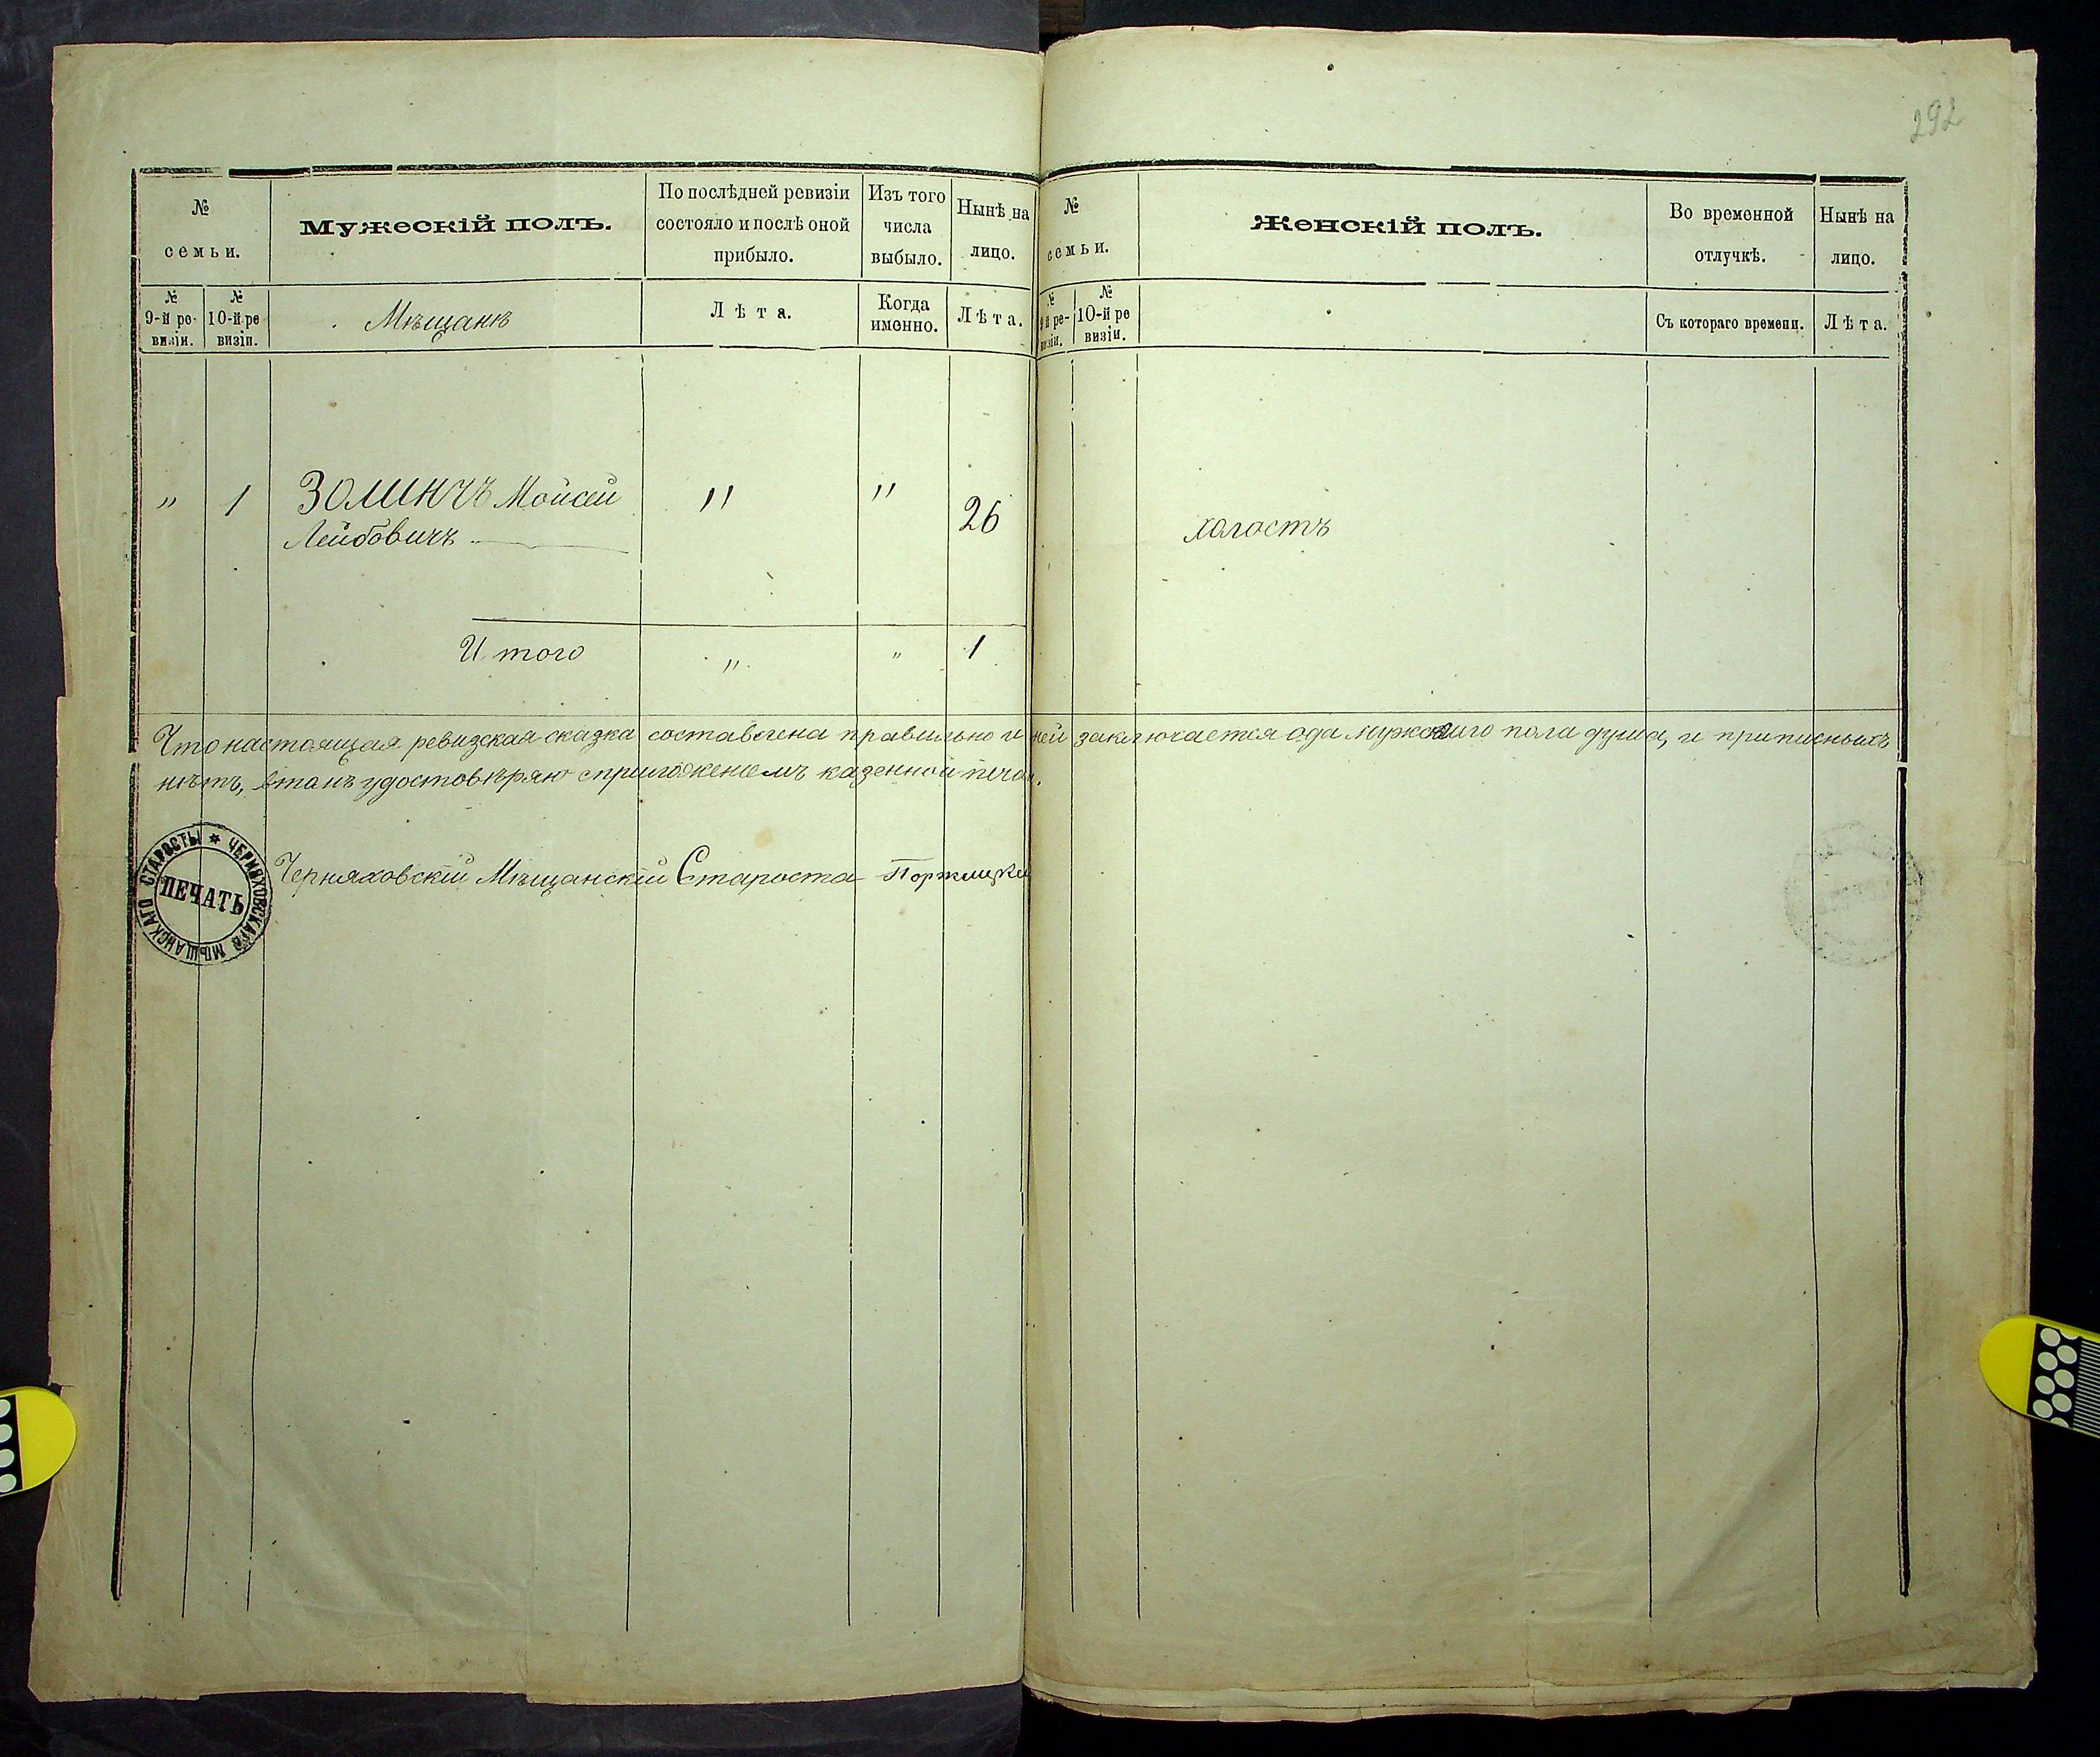 292
№ семьи.
Мужескій полъ.
По послѣдней ревизіи состояло и послѣ оной прибыло.
Изъ того числа выбыло.
Нынѣ на лицо.
№ 9-й ревизіи.
№ 10-й ревизіи.
Мѣщанѣ
Лѣта.
Когда именно.
Лѣта.
№ семьи.
Женскій полъ.
Во временной отлучкѣ.
Нынѣ на лицо.
№ 9-й ревизіи.
№ 10-й ревизіи.
Съ котораго времени.
Лѣта.
" 1 Золинчъ Мойсей " " 26 холостъ
Лейбовичъ
Итого " " 1
Что настоящая ревизская сказка составлена правильно и ней заключается ода мужскаго пола душа, и приписныхъ
нѣтъ, втомъ удостовѣряю сприложенiемъ казенной печати.
Черняховскій Мѣщанскій Староста
ПЕЧАТЬ
ЧЕРНЯХОВСКАГО МѢЩАНСКАГО СТАРОСТЫ